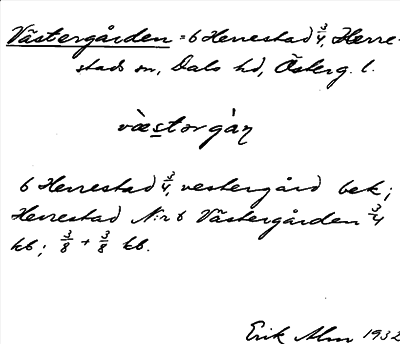 Västergården = 6 Herrestad 3/4, Herre-
stads sn, Dals hd, Österg. l.
væstərgàɳ
6 Herrestad 3/4, vestergård bek;
Herrestad N:r 6 Västergården 3/4
kb; 3/8 + 3/8 kb.
Erik Alm 1932